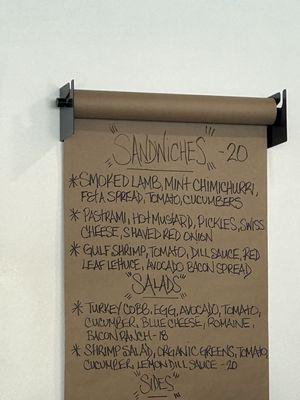 "SANDWICHES" -20
* SMOKED LAMB, MINT CHIMICHURRI,
FETA SPREAD, TOMATO, CUCUMBERS
* PASTRAMI, HOT MUSTARD, PICKLES, SWISS
CHEESE, SHAVED RED ONION
* GULF SHRIMP, TOMATO, DILL SAUCE, RED
LEAF LETTUCE, AVOCADO BACON SPREAD
"SALADS"
* TURKEY COBB, EGG, AVOCADO, TOMATO,
CUCUMBER, BLUE CHEESE, ROMAINE,
BACON RANCH -18
* SHRIMP SALAD, ORGANIC GREENS, TOMATO,
CUCUMBER, LEMON DILL SAUCE -20
"SIDES"